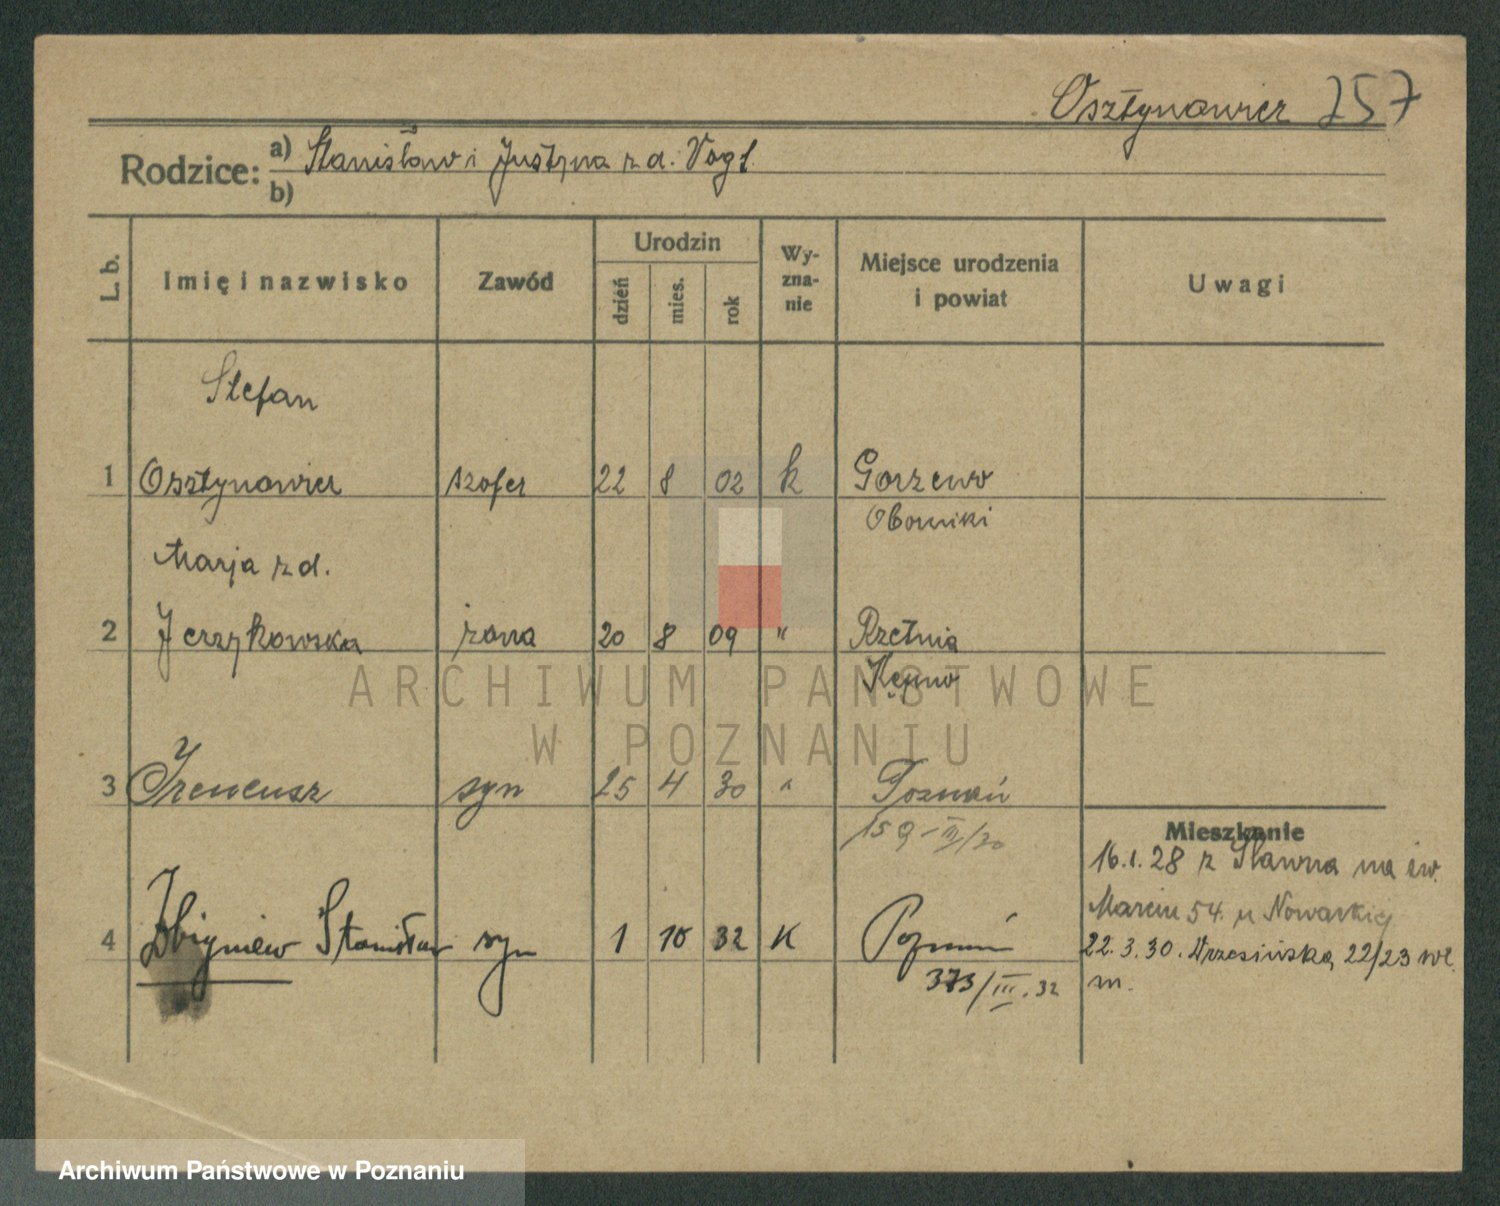 Osztynowicz 257
Rodzice: a) Stanisław i Justyna z d. Vogt
b)
L. b.
Imię i nazwisko
Zawód
Urodzin
dzień
mies.
rok
Wy-
zna-
nie
Miejsce urodzenia
i powiat
Uwagi
Stefan
1 Osztynowicz szofer 22 8 02 k Gorzewo
Oborniki
Marja z d.
2 Jerzykowska żona 20 8 09 " Rzetnia
Kępno
3 Ireneusz syn 25 4 30 " Poznań
Mieszkanie
16.1.28 z Sławna na św.
Marcin 54. u Nowackiej
4 Zbigniew Stanisław syn 1 10 32 K Poznań
22.3.30. Wrzesińska 22/23 wł.
373/III.32
m.
ARCHIWUM PAŃSTWOWE
W POZNANIU
Archiwum Państwowe w Poznaniu